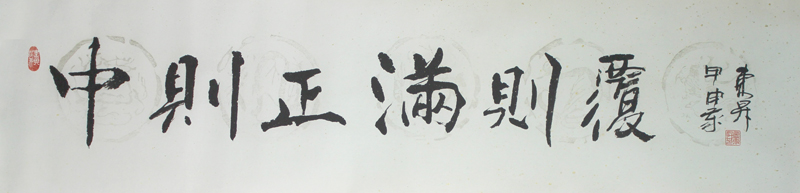 中則正滿則覆
東昇
甲申